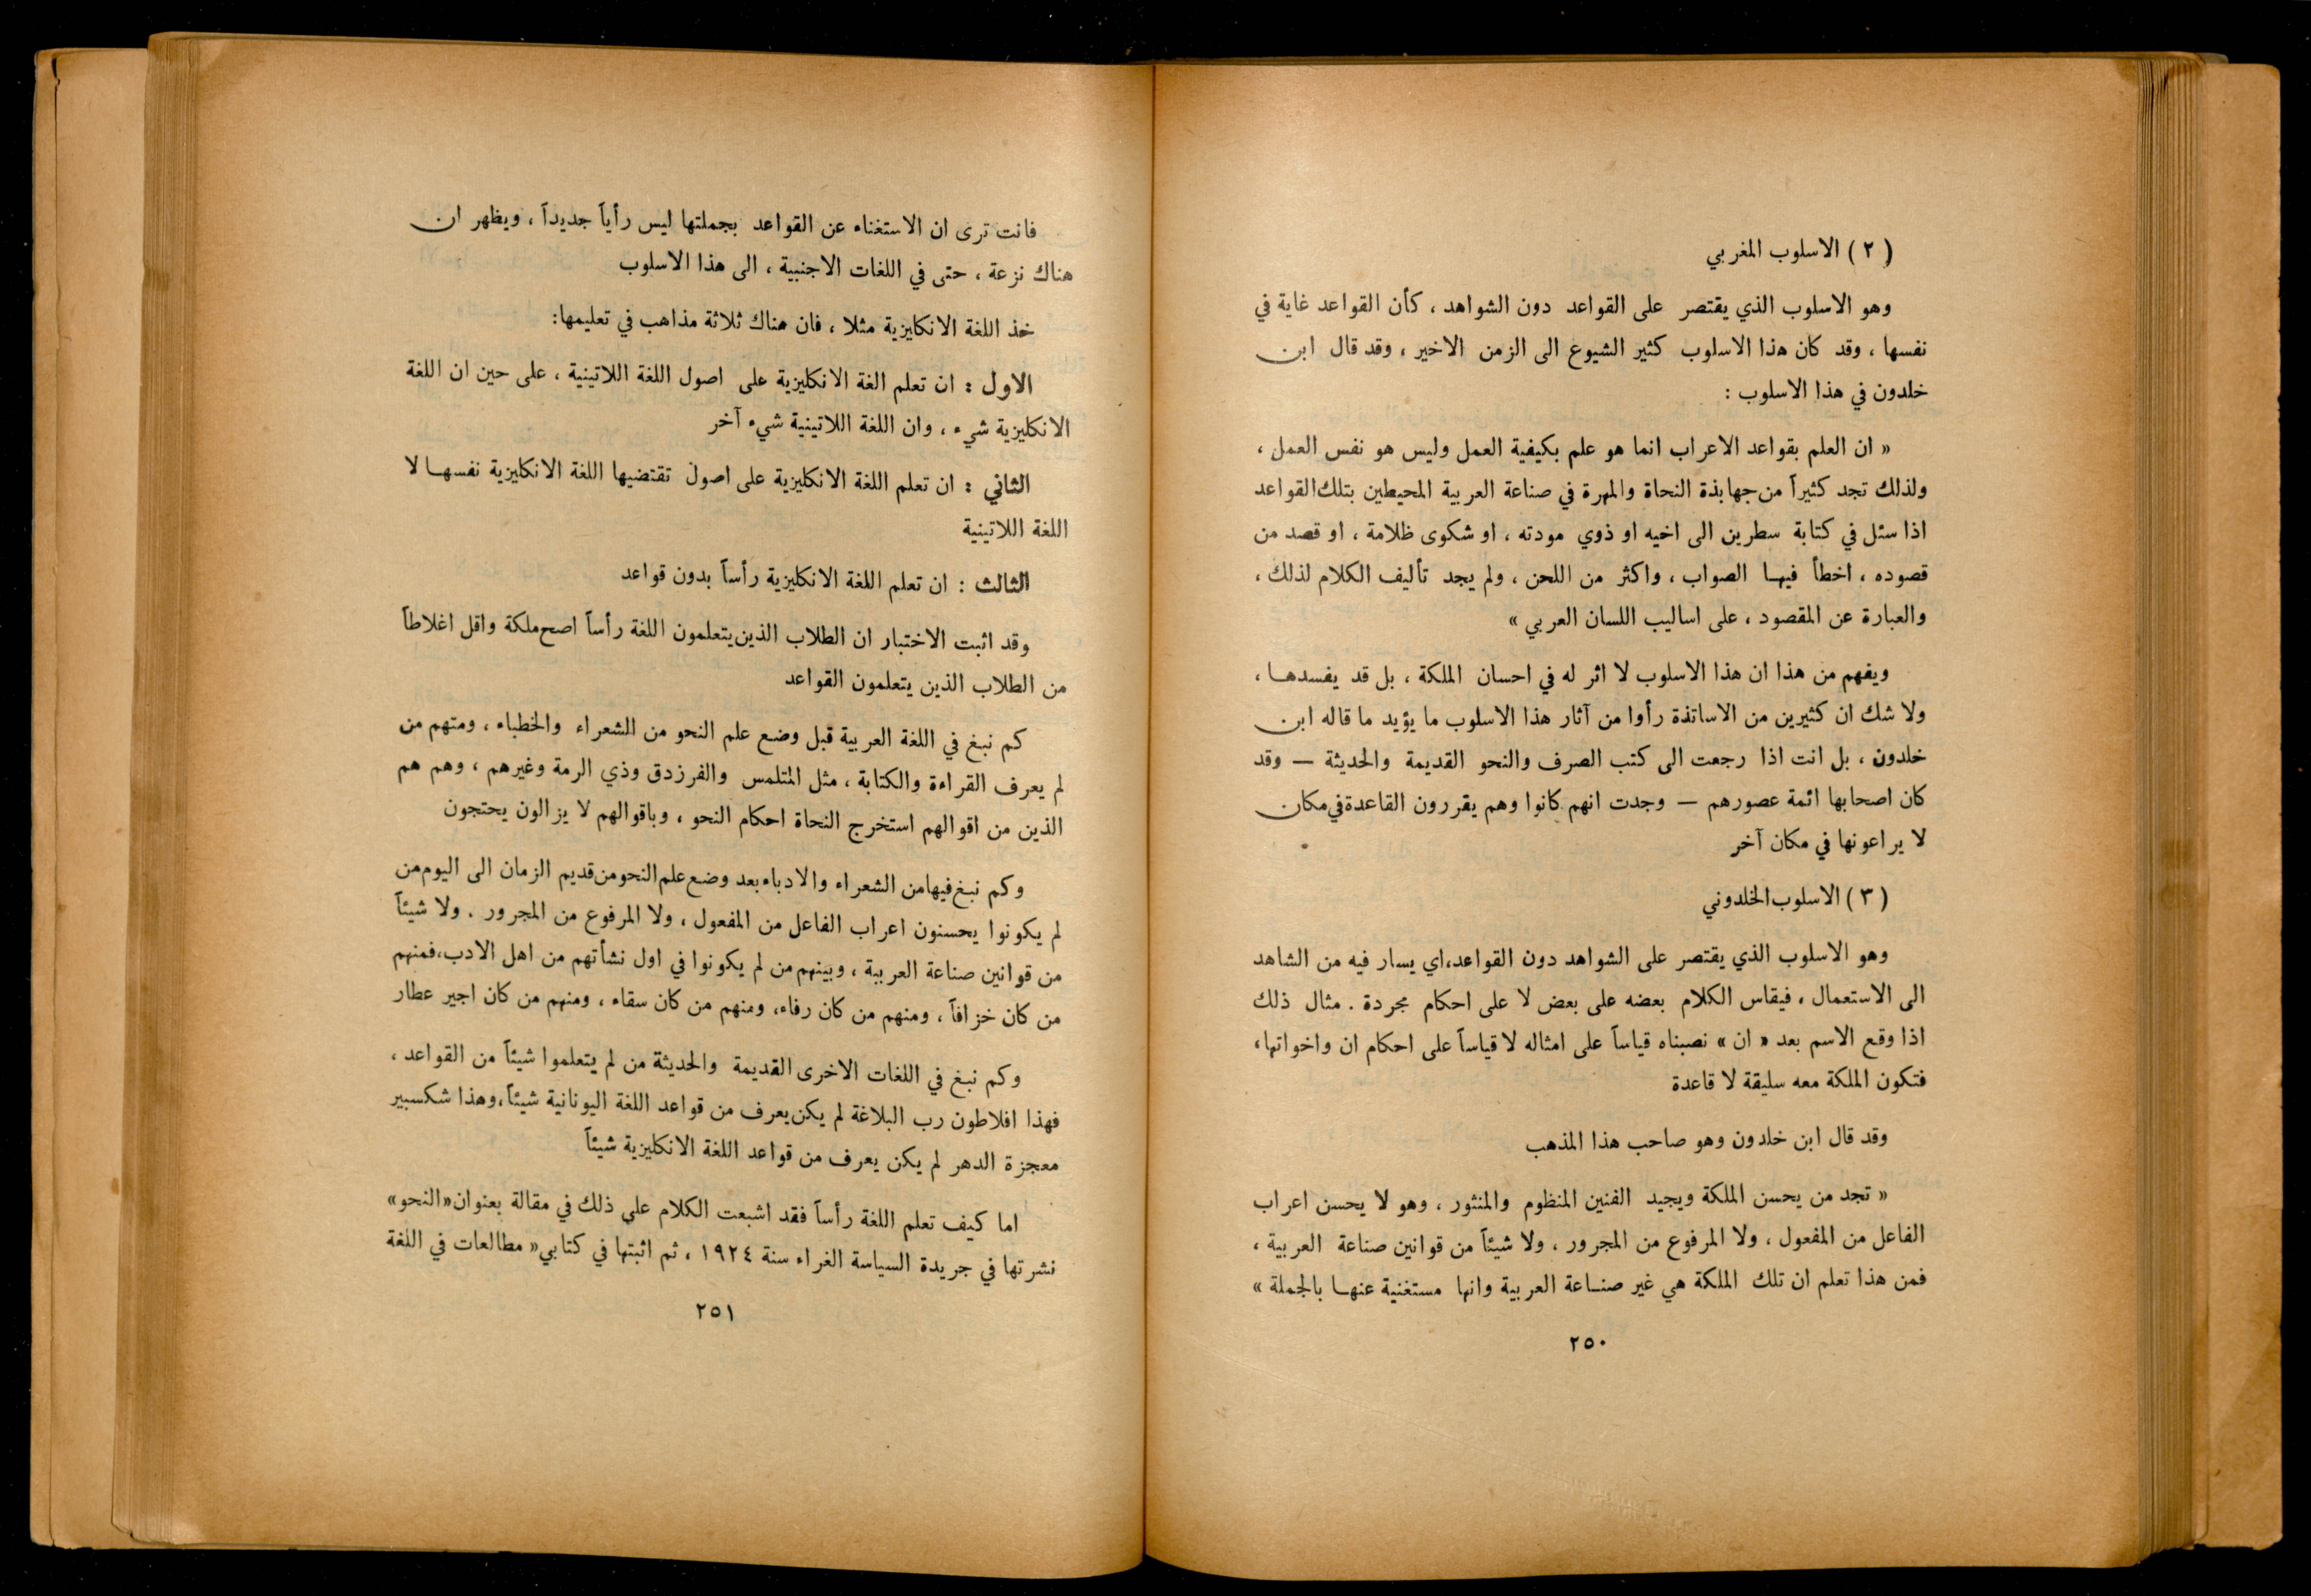 ( ٢ ) الاسلوب المغربي
وهو الاسلوب الذي يقتصر على القواعد دون الشواهد ، كأن القواعد غاية في
نفسها ، وقد كان هذا الاسلوب كثير الشيوع الى الزمن الاخير ، وقد قال ابن
خلدون في هذا الاسلوب :
« ان العلم بقواعد الاعراب انما هو علم بكيفية العمل وليس هو نفس العمل ،
ولذلك تجد كثيراً من جهابذة النحاة والمهرة في صناعة العربية المحيطين بتلك القواعد
اذا سئل في كتابة سطرين الى اخيه او ذوي مودته ، او شكوى ظلامة ، او قصد من
قصوده ، اخطأ فيها الصواب ، واكثر من اللحن ، ولم يجد تأليف الكلام لذلك ،
والعبارة عن المقصود ، على اساليب اللسان العربي »
ويفهم من هذا ان هذا الاسلوب لا اثر له في احسان الملكة ، بل قد يفسدها ،
ولا شك ان كثيرين من الاساتذة رأوا من آثار هذا الاسلوب ما يؤيد ما قاله ابن
خلدون ، بل انت اذا رجعت الى كتب الصرف والنحو القديمة والحديثة — وقد
كان اصحابها ائمة عصورهم — وجدت انهم كانوا وهم يقررون القاعدة في مكان
لا يراعونها في مكان آخر
( ٣ ) الاسلوب الخلدوني
وهو الاسلوب الذي يقتصر على الشواهد دون القواعد، اي يسار فيه من الشاهد
الى الاستعمال ، فيقاس الكلام بعضه على بعض لا على احكام مجردة . مثال ذلك
اذا وقع الاسم بعد « ان » نصبناه قياساً على امثاله لا قياساً على احكام ان واخواتها،
فتكون الملكة معه سليقة لا قاعدة
وقد قال ابن خلدون وهو صاحب هذا المذهب
« تجد من يحسن الملكة ويجيد الفنين المنظوم والمنثور ، وهو لا يحسن اعراب
الفاعل من المفعول ، ولا المرفوع من المجرور ، ولا شيئاً من قوانين صناعة العربية ،
فمن هذا تعلم ان تلك الملكة هي غير صناعة العربية وانها مستغنية عنها بالجملة »
٢٥٠
فانت ترى ان الاستغناء عن القواعد بجملتها ليس رأياً جديداً ، ويظهر ان
هناك نزعة ، حتى في اللغات الاجنبية ، الى هذا الاسلوب
خذ اللغة الانكليزية مثلا ، فان هناك ثلاثة مذاهب في تعليمها:
الاول : ان تعلم الغة الانكليزية على اصول اللغة اللاتينية ، على حين ان اللغة
الانكليزية شيء ، وان اللغة اللاتينية شيء آخر
الثاني : ان تعلم اللغة الانكليزية على اصول تقتضيها اللغة الانكليزية نفسها لا
اللغة اللاتينية
الثالث : ان تعلم اللغة الانكليزية رأساً بدون قواعد
وقد اثبت الاختبار ان الطلاب الذين يتعلمون اللغة رأساً اصح ملكة واقل اغلاطاً
من الطلاب الذين يتعلمون القواعد
كم نبغ في اللغة العربية قبل وضع علم النحو من الشعراء والخطباء ، ومنهم من
لم يعرف القراءة والكتابة ، مثل المتلمس والفرزدق وذي الرمة وغيرهم ، وهم هم
الذين من اقوالهم استخرج النحاة احكام النحو ، وباقوالهم لا يزالون يحتجون
وكم نبغ فيها من الشعراء والادباء بعد وضع علم النحو من قديم الزمان الى اليوم من
لم يكونوا يحسنون اعراب الفاعل من المفعول ، ولا المرفوع من المجرور . ولا شيئاً
من قوانين صناعة العربية ، وبينهم من لم يكونوا في اول نشأتهم من اهل الادب، فمنهم
من كان خزافاً ، ومنهم من كان رفاء، ومنهم من كان سقاء ، ومنهم من كان اجير عطار
وكم نبغ في اللغات الاخرى القديمة والحديثة من لم يتعلموا شيئاً من القواعد ،
فهذا افلاطون رب البلاغة لم يكن يعرف من قواعد اللغة اليونانية شيئاً، وهذا شكسبير
معجزة الدهر لم يكن يعرف من قواعد اللغة الانكليزية شيئاً
اما كيف تعلم اللغة رأساً فقد اشبعت الكلام على ذلك في مقالة بعنوان «النحو»
نشرتها في جريدة السياسة الغراء سنة ١٩٢٤ ، ثم اثبتها في كتابي « مطالعات في اللغة
٢٥١